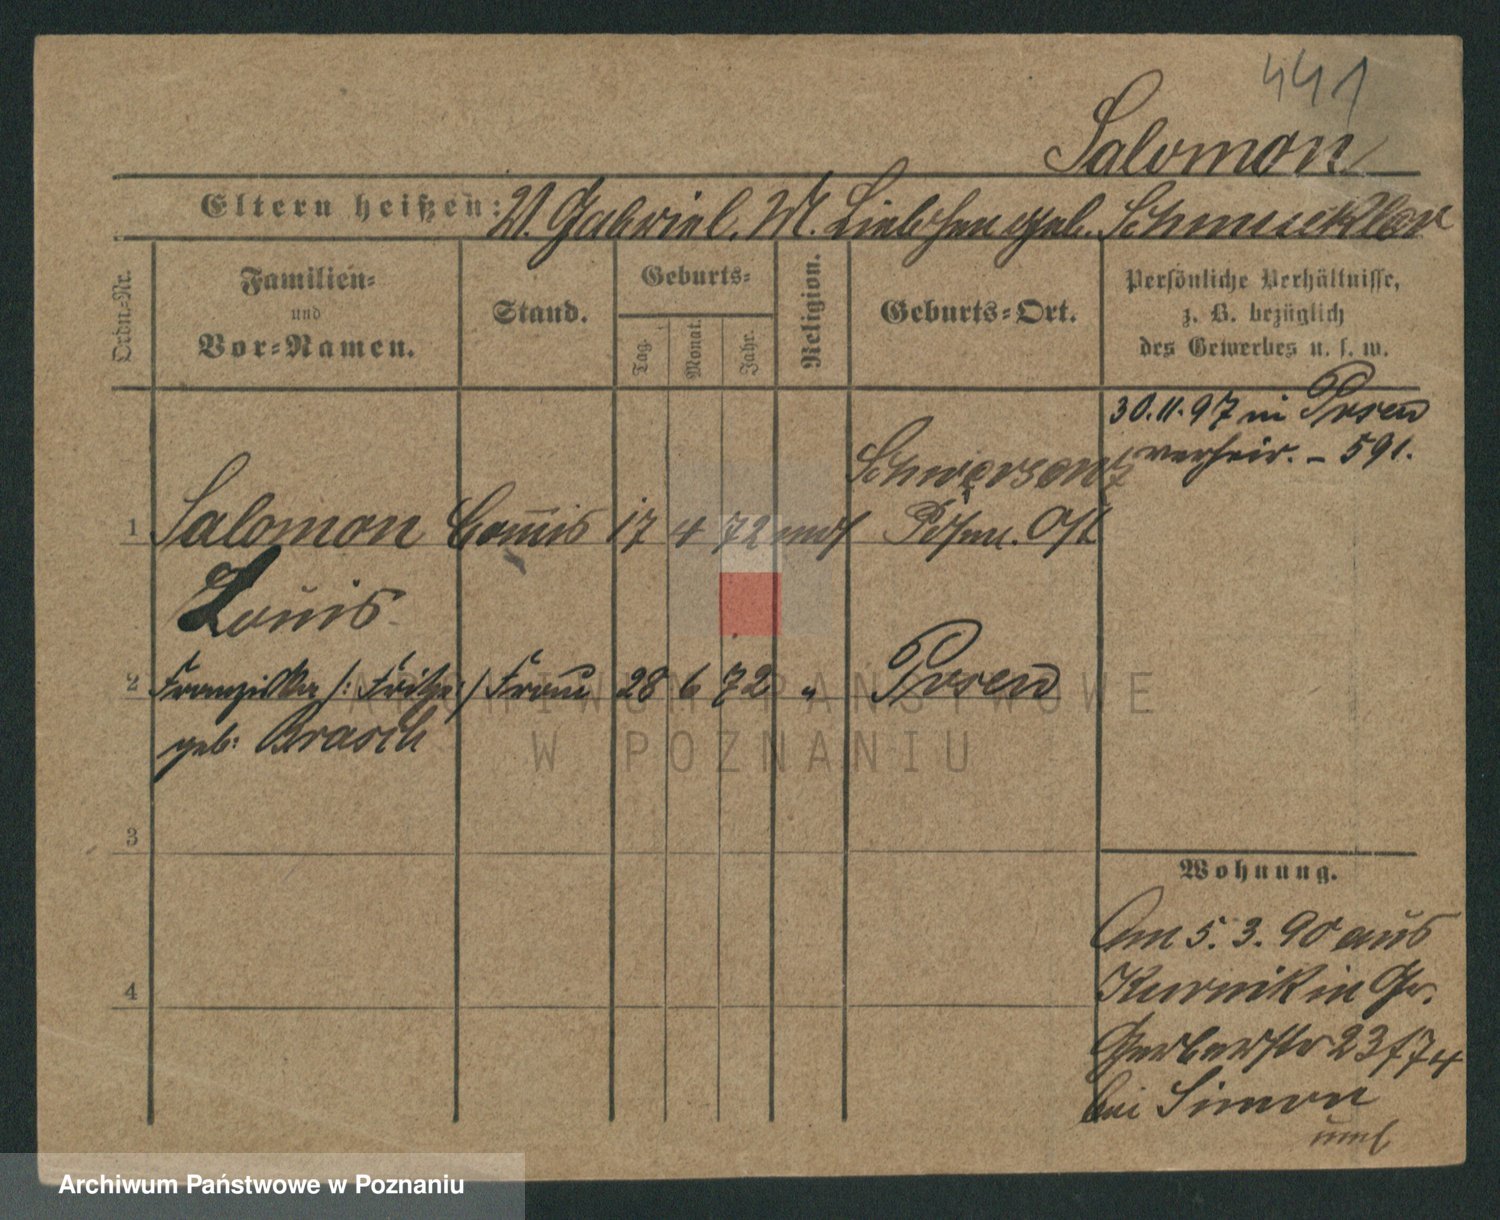 441
Salomon
Eltern heißen: V. Gabriel. M. Liebchen geb. Schmuckler
Ordn.-Nr.
Familien-
und
Vor-Namen.
Stand.
Geburts-
Tag.
Monat.
Jahr.
Religion.
Geburts-Ort.
Persönliche Verhältnisse,
z. B. bezüglich
des Gewerbes u. s. w.
30.11.97 in Posen
verheir. - 591.
Schwersenz
1 Salomon Commis 17 4 72 mos Posen. Ost
Louis
2 Franziska /: Fritze :/ Frau 28 6 72 " Posen
geb: Brasch
3
4
Wohnung.
Am 5. 3. 90 aus
Kurnik in Gr.
Gerberstr 23 f 74
bei Simon
ARCHIWUM PAŃSTWOWE
W POZNANIU
Archiwum Państwowe w Poznaniu